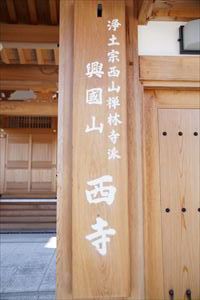 浄土宗西山禅林寺派
興國山
西寺